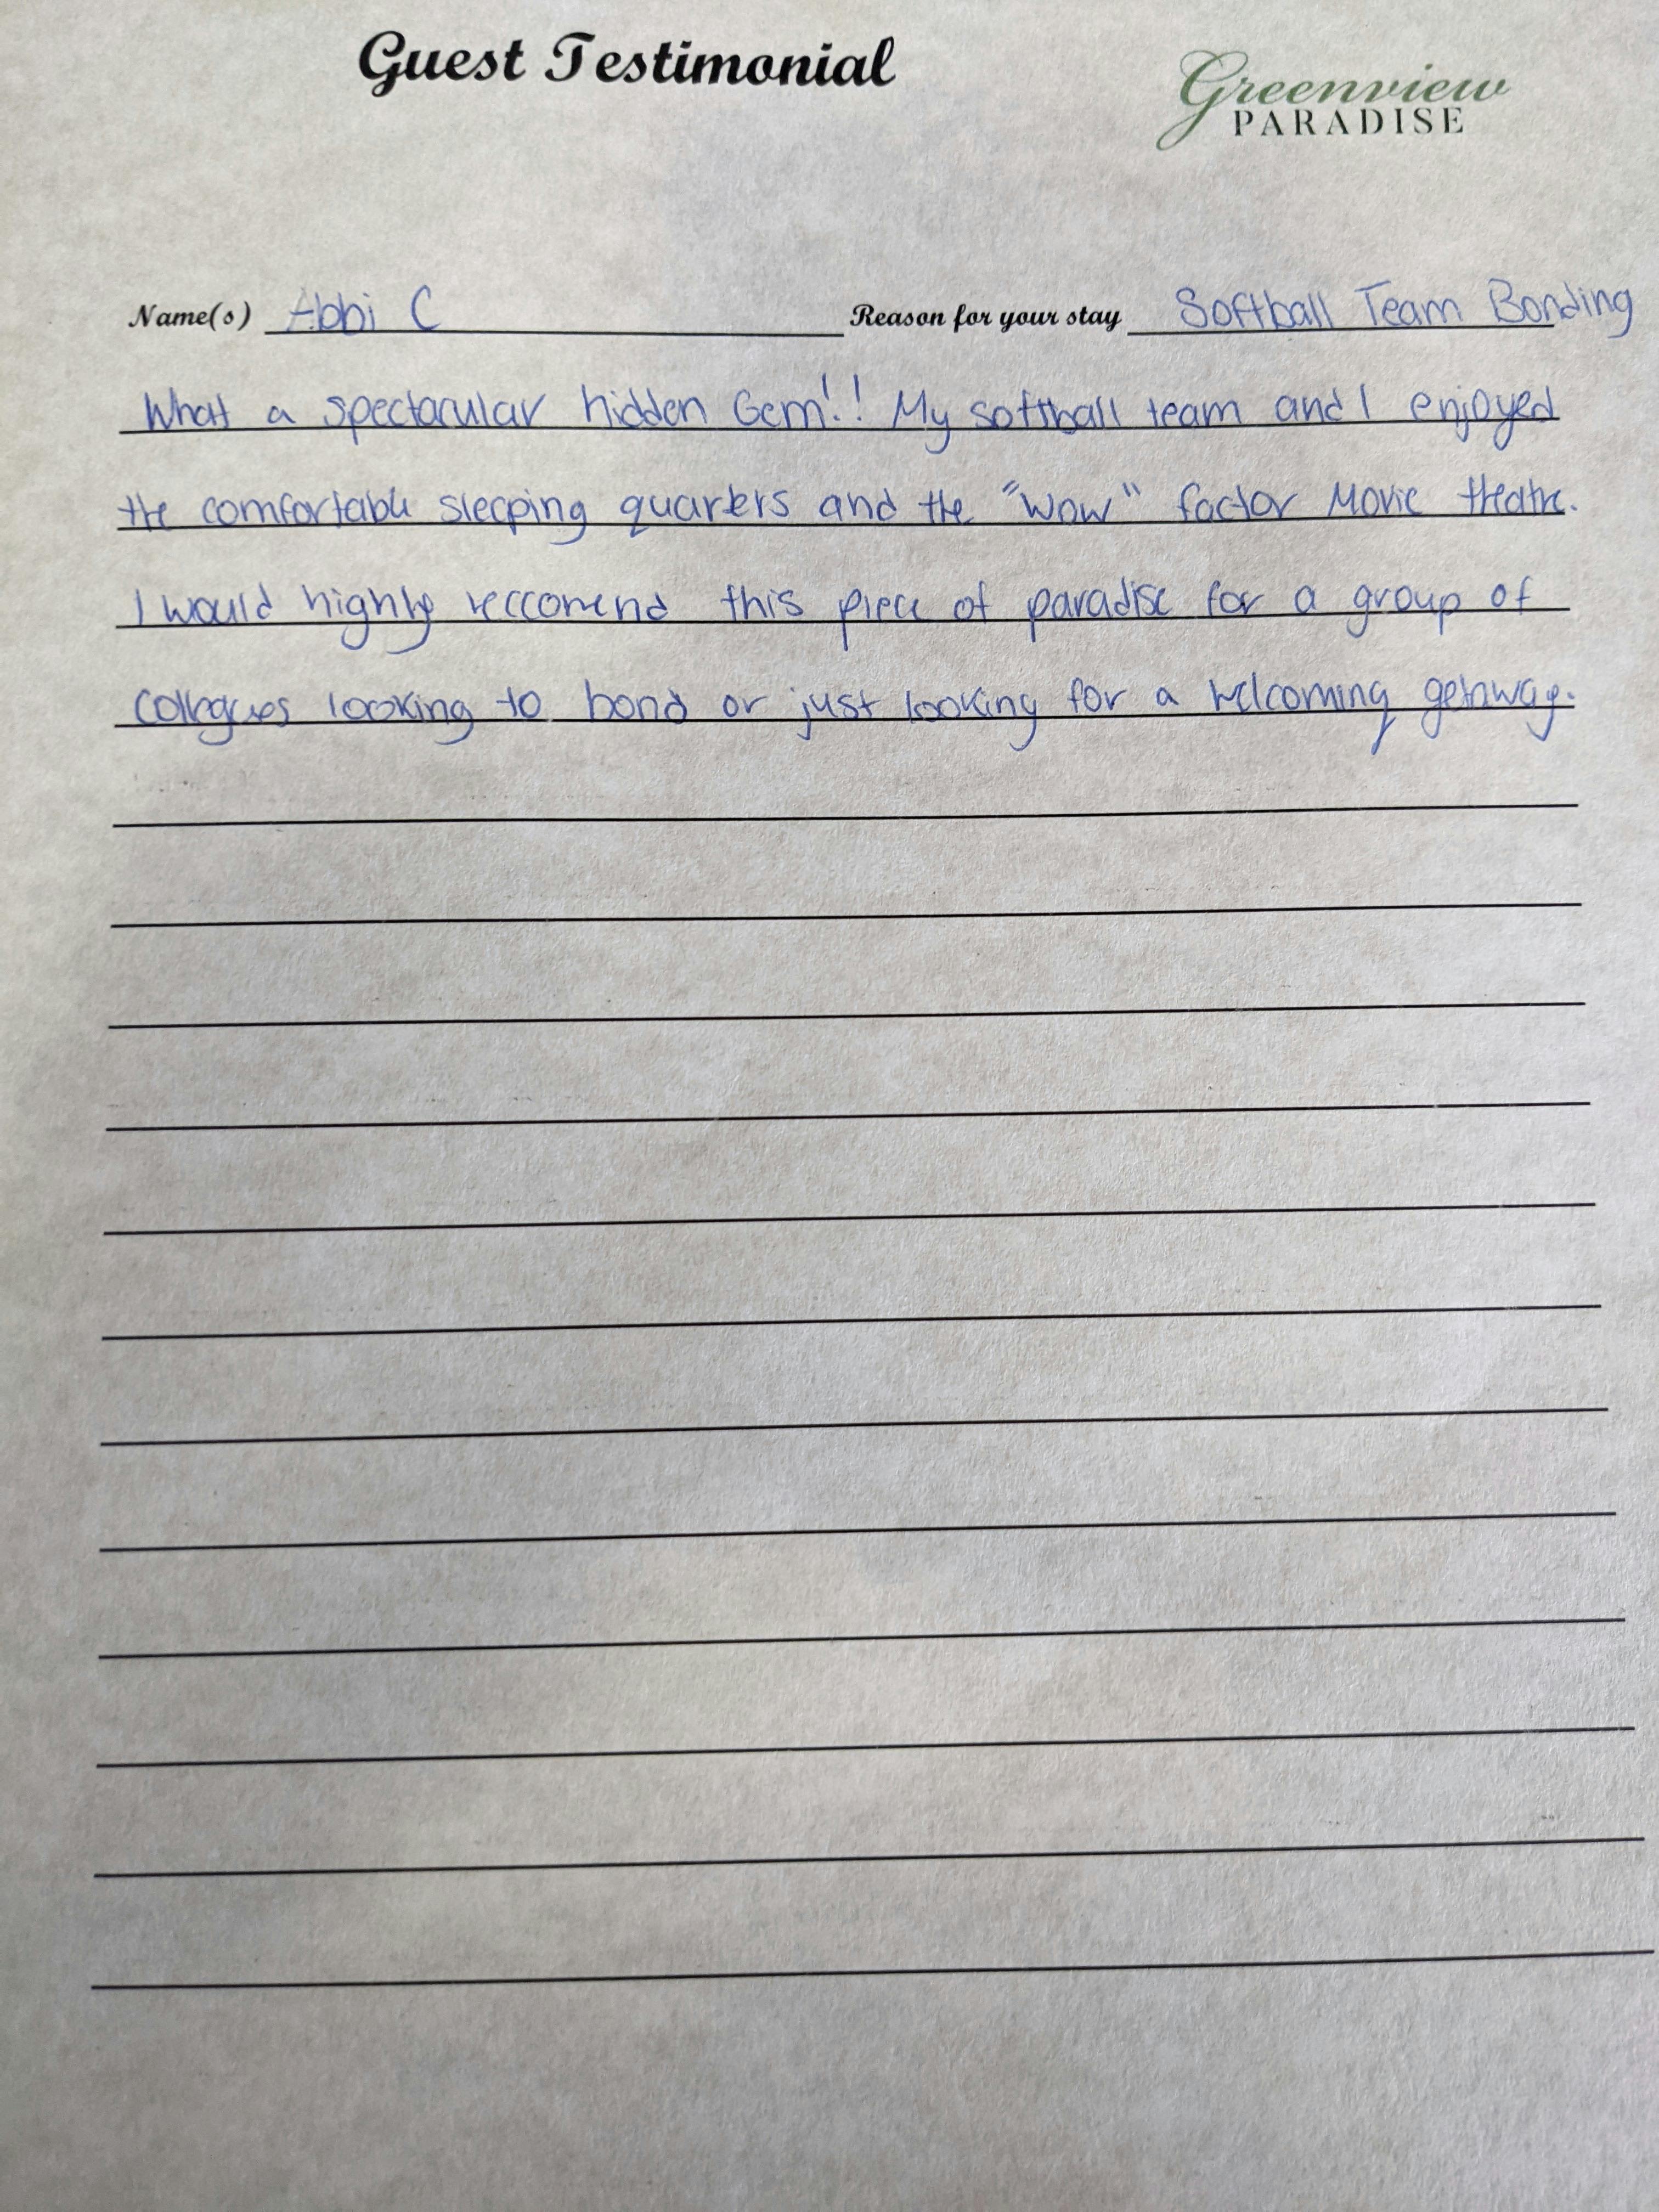 Guest Testimonial
Greenview
PARADISE
Name(s) Abbi C Reason for your stay Softball Team Bonding
What a spectacular hidden Gem!! My softball team and I enjoyed
the comfortable sleeping quarters and the "Wow" factor Movie theatre.
I would highly reccomend this piece of paradise for a group of
collegues looking to bond or just looking for a welcoming getaway.